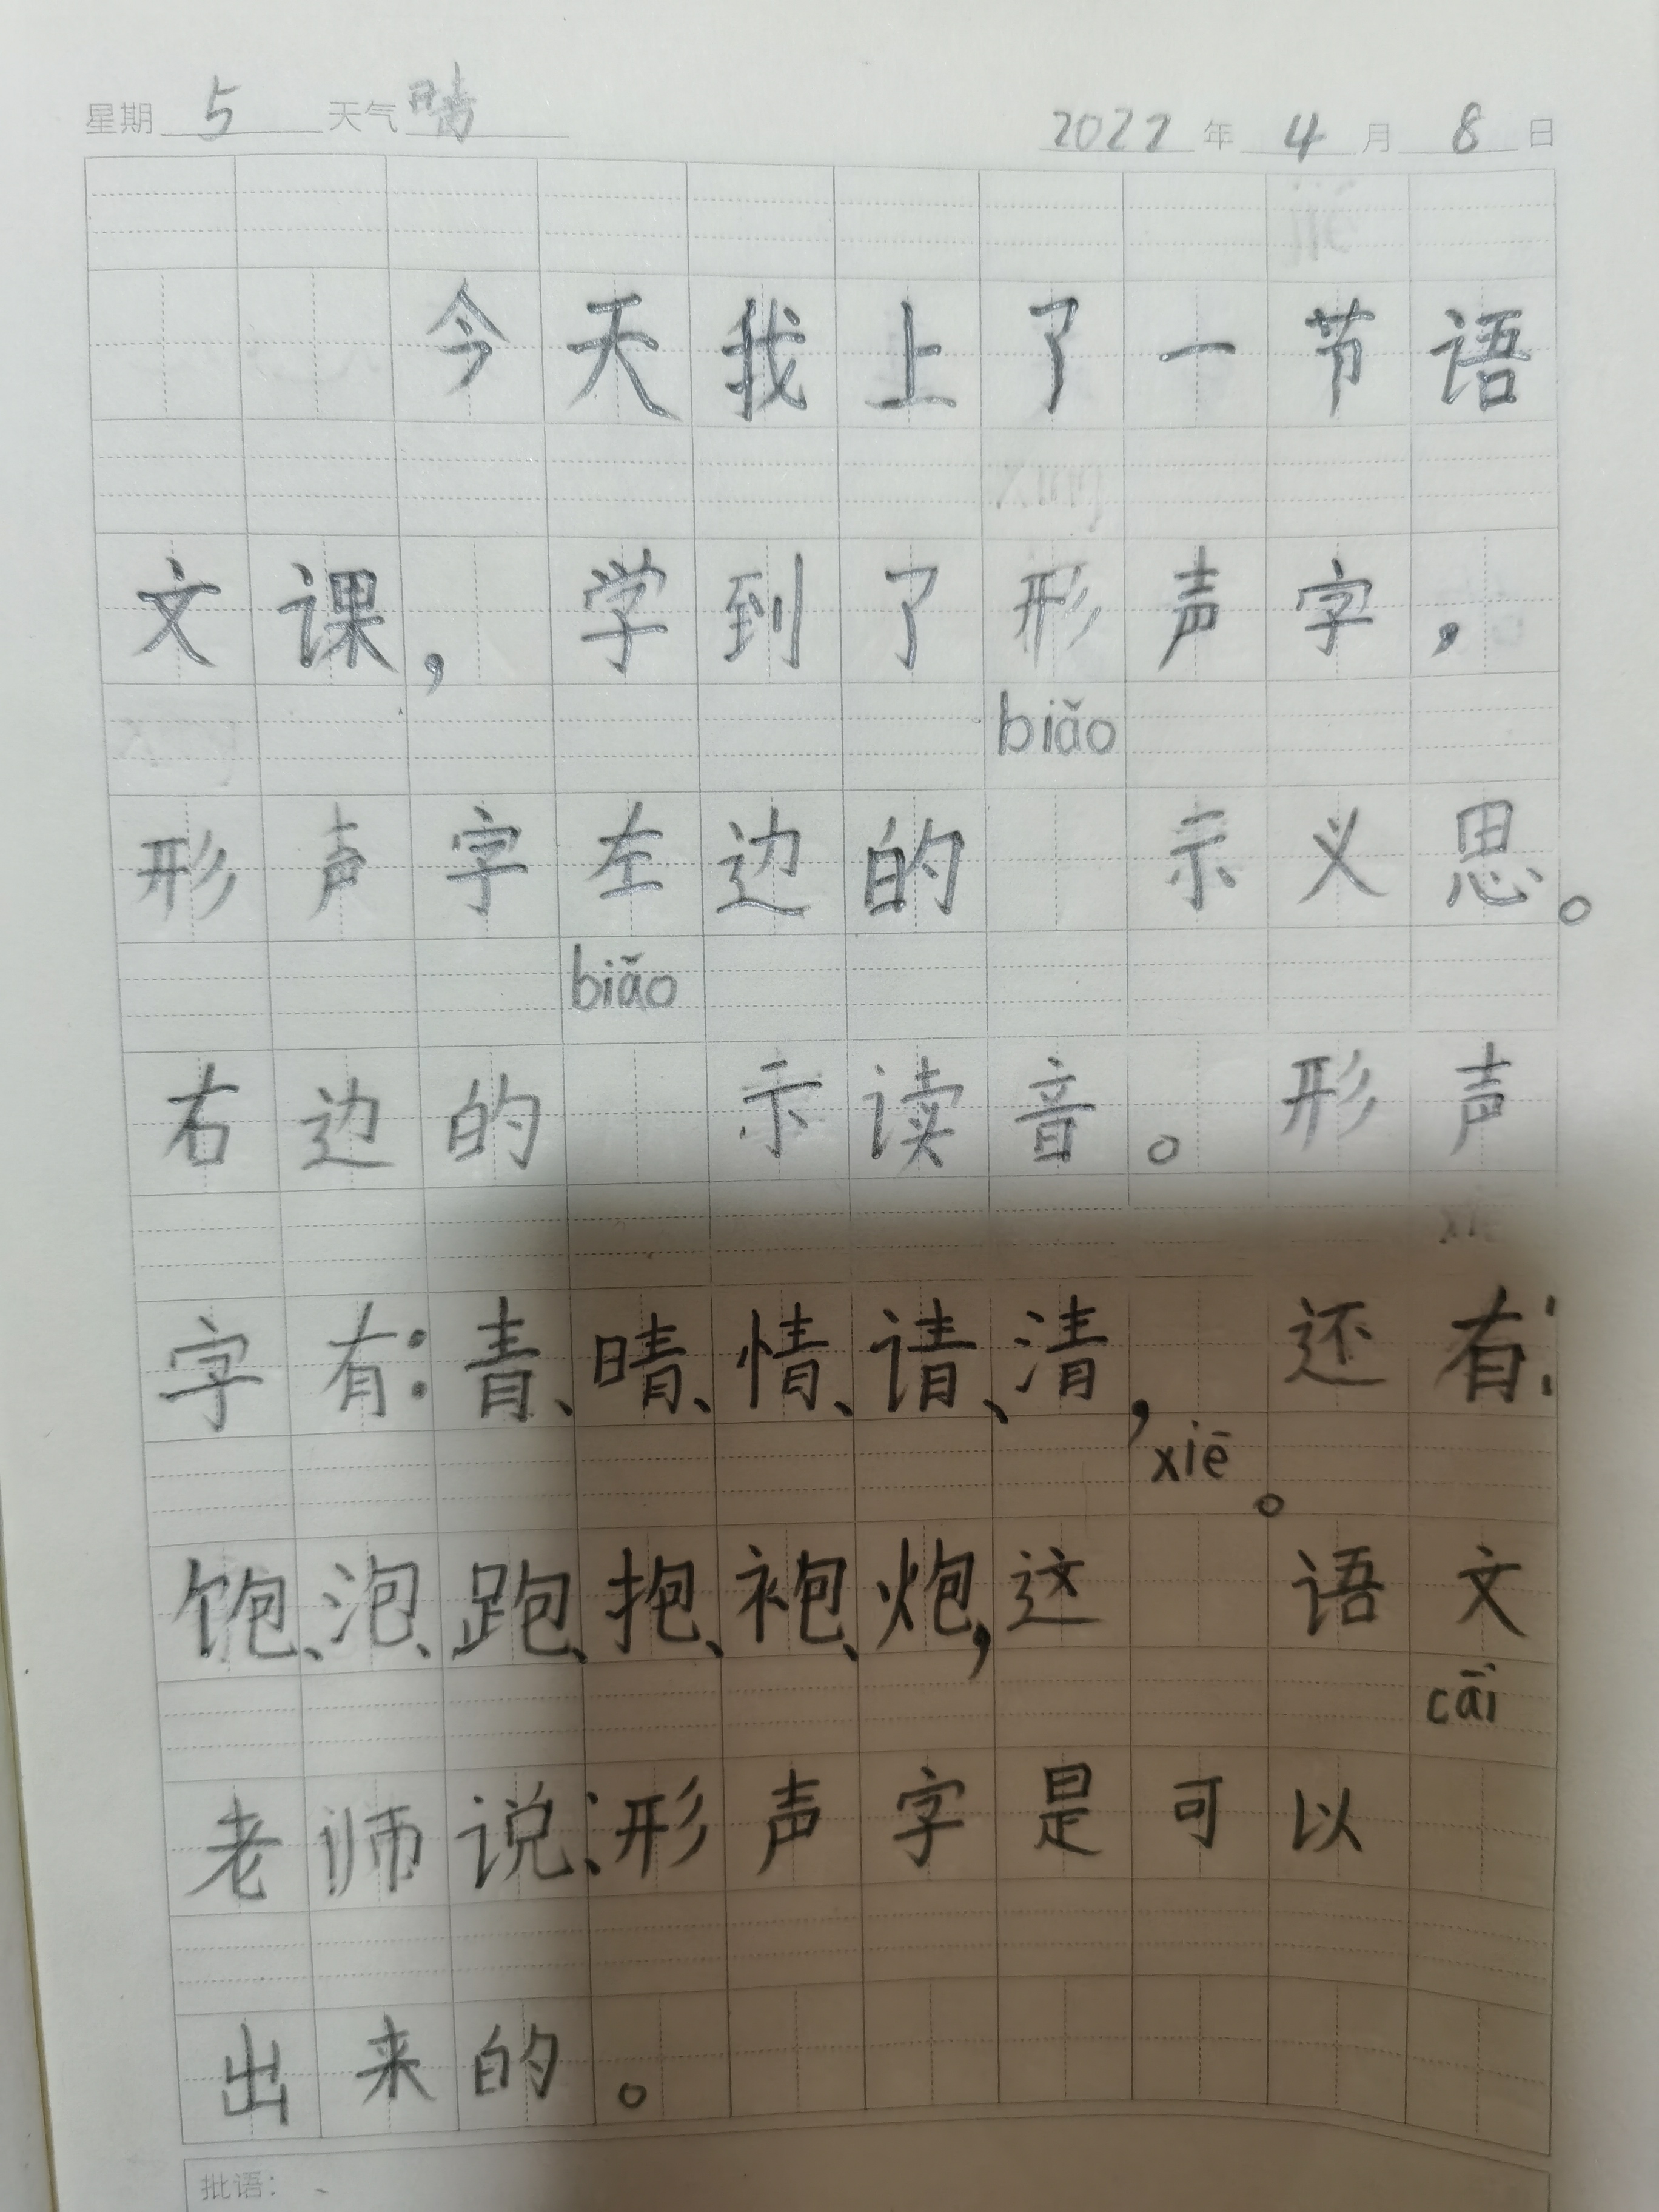 星期 5 天气 晴 2022 年 4 月 8 日
今天我上了一节语
文课，学到了形声字，
biǎo
形声字左边的 示义思。
biǎo
右边的 示读音。形声
字有：青、晴、情、请、清，还有：
xiē
饱、泡、跑、抱、袍、炮，这 。语文
cāi
老师说：形声字是可以
出来的。
批语：